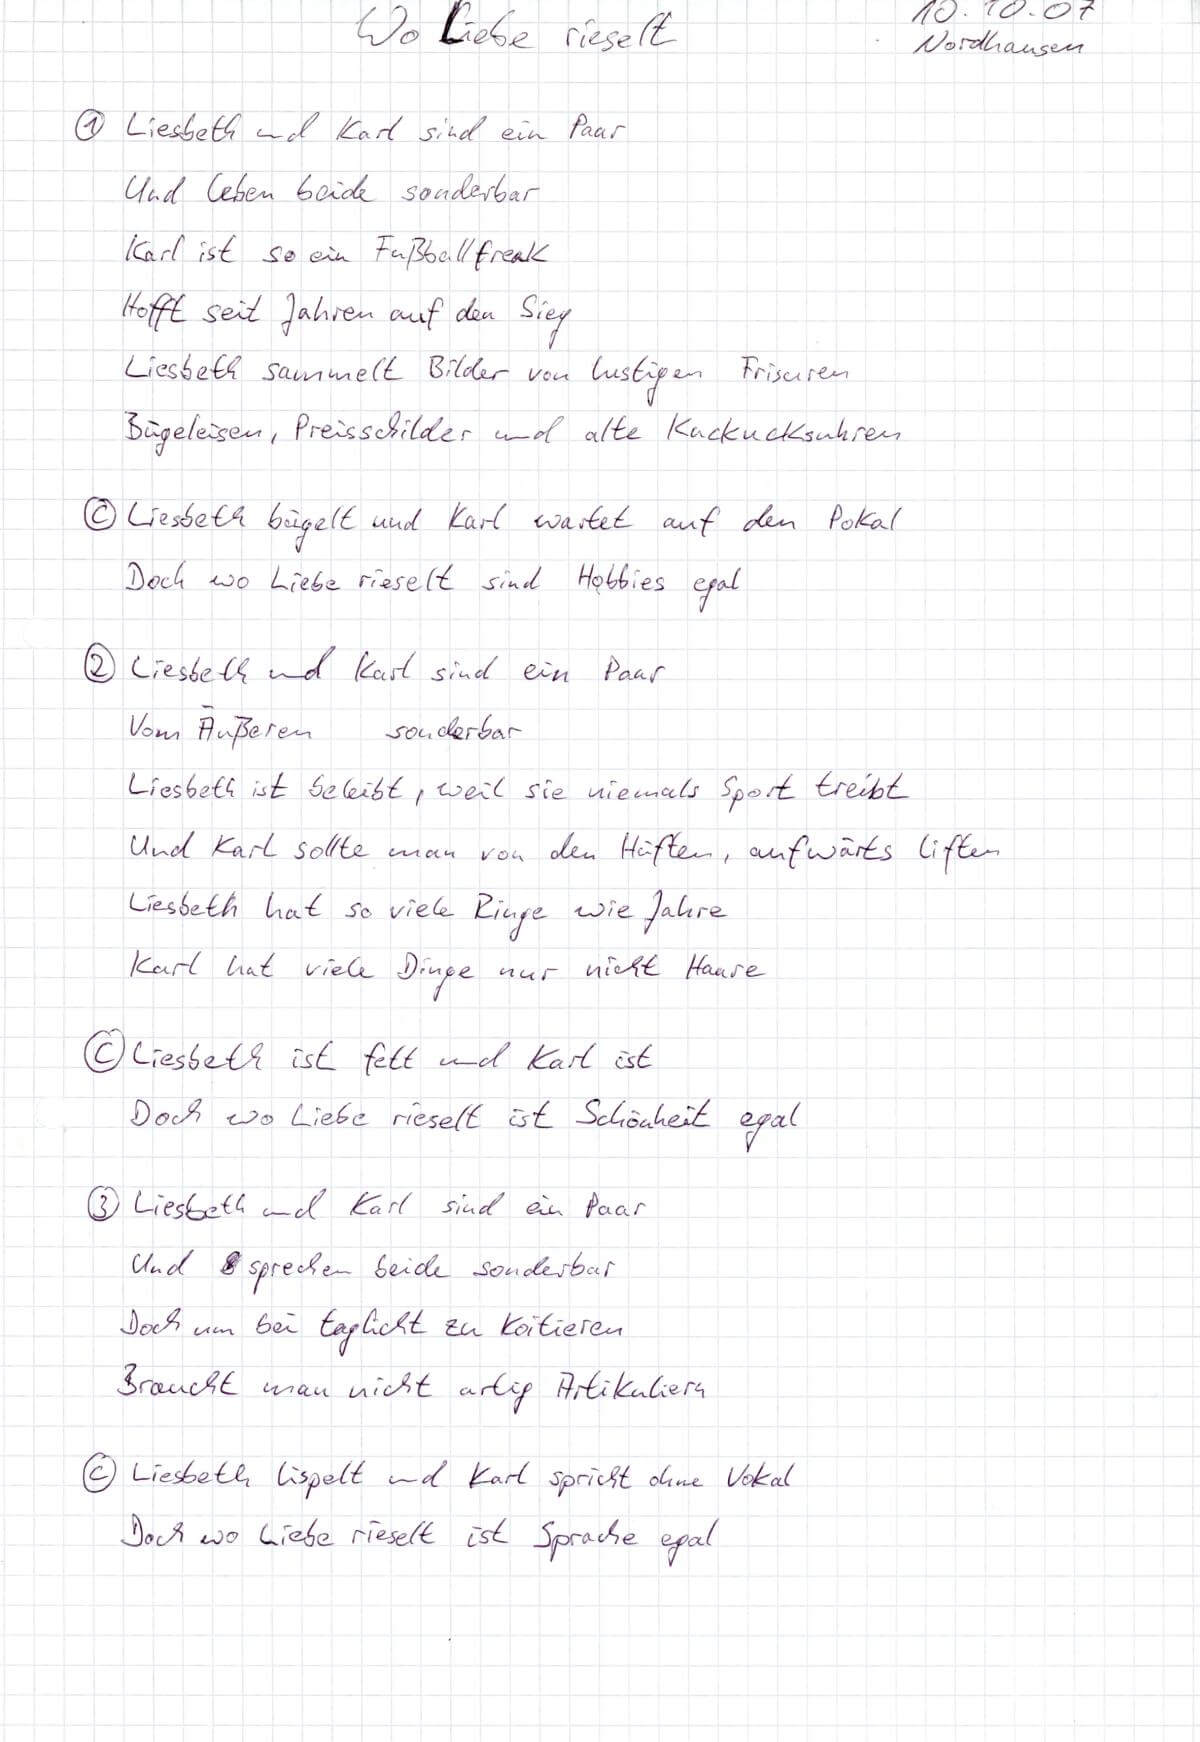 Wo Liebe rieselt
10.10.07
Nordhausen
① Liesbeth und Karl sind ein Paar
Und leben beide sonderbar
Karl ist so ein Fußballfreak
Hofft seit Jahren auf den Sieg
Liesbeth sammelt Bilder von lustigen Frisuren
Bügeleisen, Preisschilder und alte Kuckucksuhren
Ⓒ Liesbeth bügelt und Karl wartet auf den Pokal
Doch wo Liebe rieselt sind Hobbies egal
② Liesbeth und Karl sind ein Paar
Vom Äußeren sonderbar
Liesbeth ist beleibt, weil sie niemals Sport treibt
Und Karl sollte man von den Hüften, aufwärts liften
Liesbeth hat so viele Ringe wie Jahre
Karl hat viele Dinge nur nicht Haare
Ⓒ Liesbeth ist fett und Karl ist
Doch wo Liebe rieselt ist Schönheit egal
③ Liesbeth und Karl sind ein Paar
Und sprechen beide sonderbar
Doch um bei taglicht zu Koitieren
Braucht man nicht artig Artikuliern
Ⓒ Liesbeth lispelt und Karl spricht ohne Vokal
Doch wo Liebe rieselt ist Sprache egal